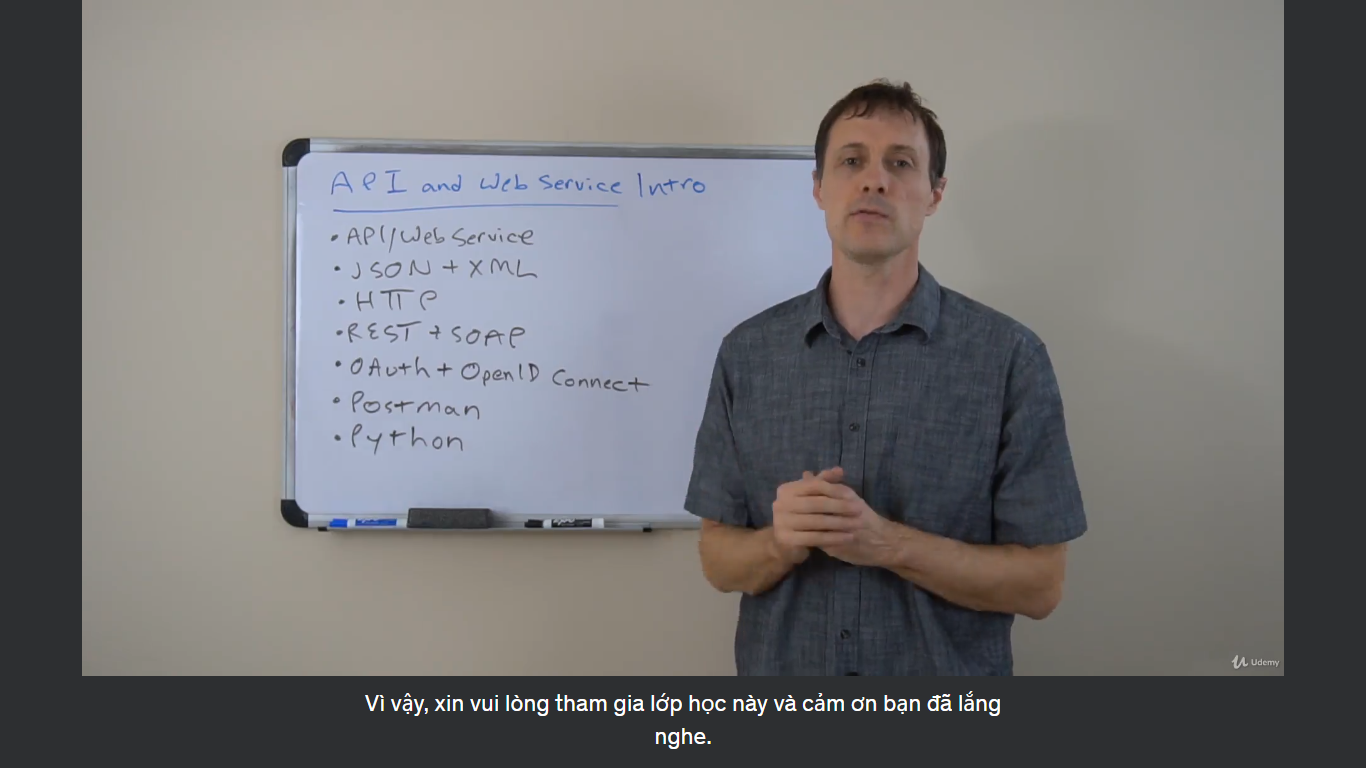 API and Web Service Intro
• API/Web Service
• JSON + XML
• HTTP
• REST + SOAP
• OAuth + OpenID Connect
• Postman
• Python
Udemy
Vì vậy, xin vui lòng tham gia lớp học này và cảm ơn bạn đã lắng
nghe.